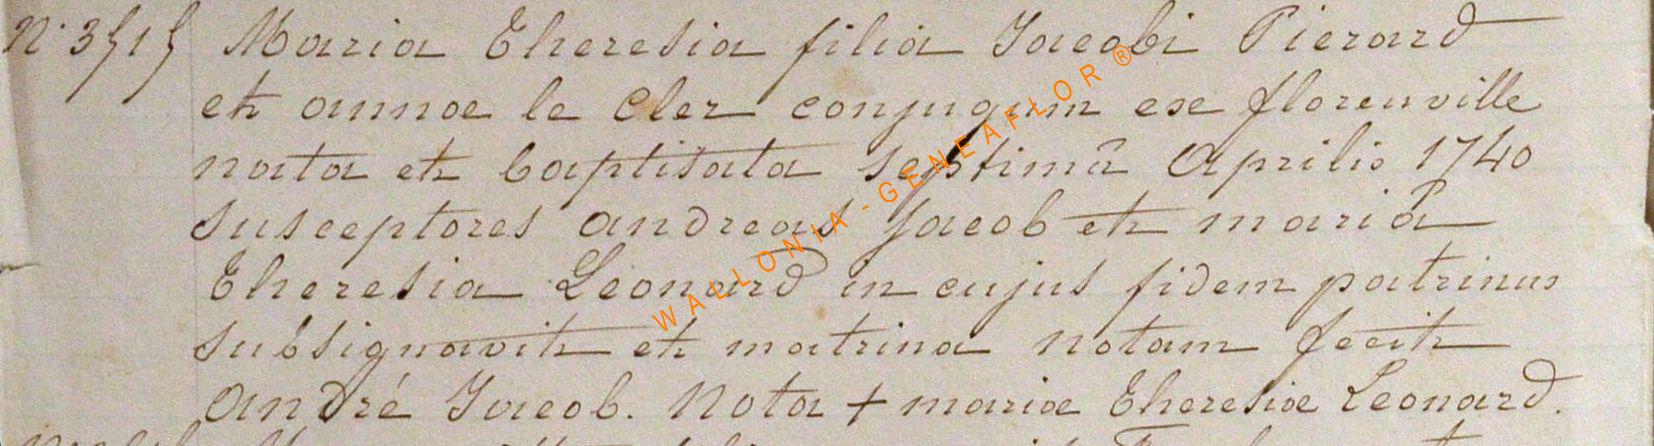 N. 3515 Maria Theresia filia Jacobi Pierard
et annae le Cler conjugum ex florenville
nata et baptisata septimâ Aprilis 1740
susceptores andreas Jacob et mariâ
Theresia Leonard in cujus fidem patrinus
subsignavit et matrina notam fecit
André Jacob. Nota + mariae Theresiae Leonard.
WALLONIA-GENEAFLOR®